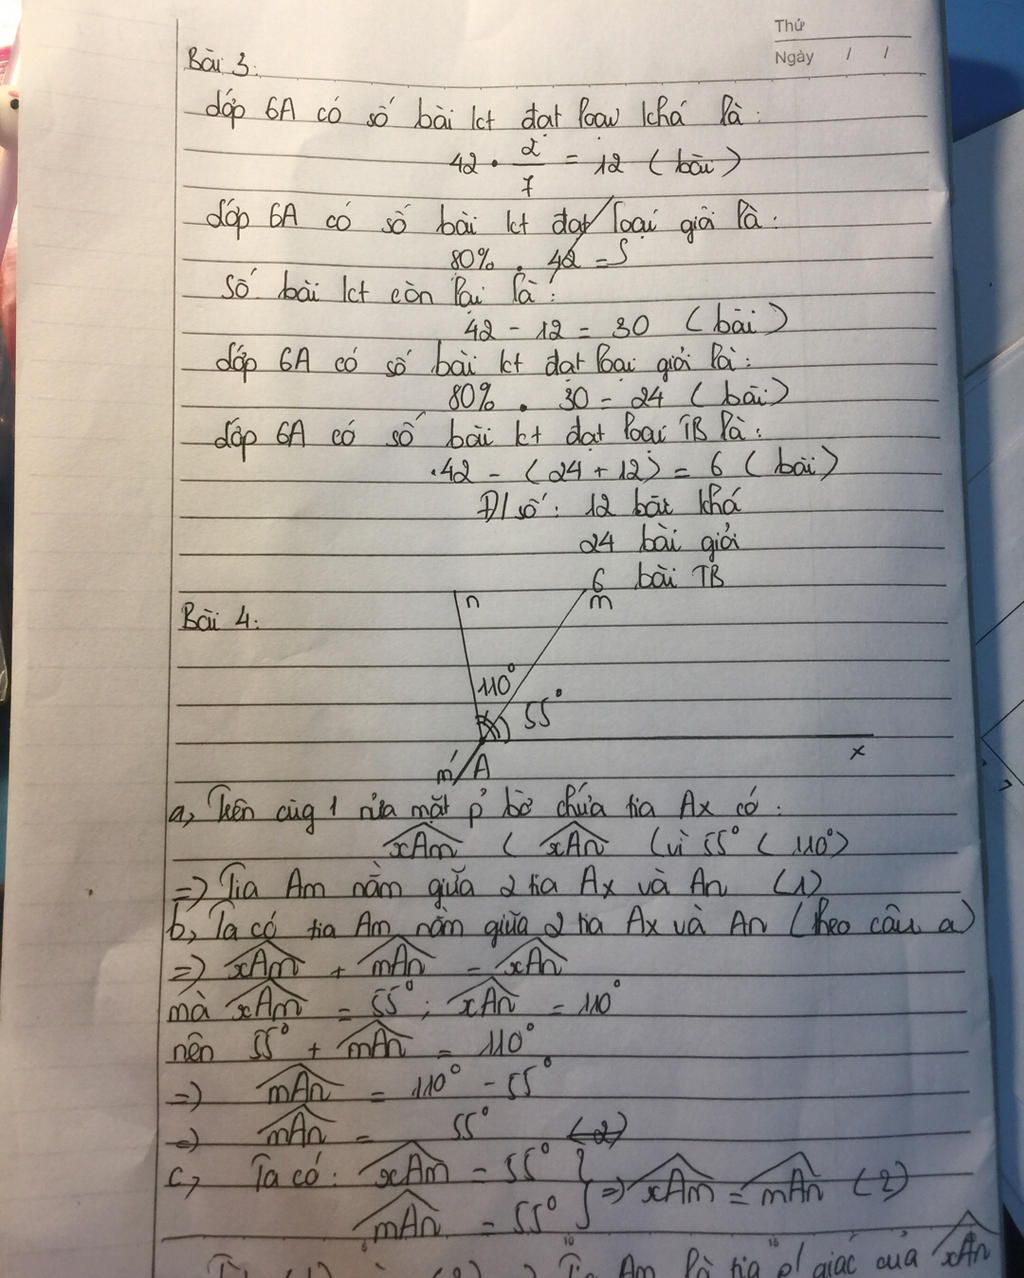 Thứ
Ngày / /
Bài 3:
Lớp 6A có số bài kt đạt loại khá là:
42 . 2/7 = 12 (bài)
Lớp 6A có số bài kt đạt loại giỏi là:
80% . 42 = 
Số bài kt còn lại là:
42 - 12 = 30 (bài)
Lớp 6A có số bài kt đạt loại giỏi là:
80% . 30 = 24 (bài)
Lớp 6A có số bài kt đạt loại TB là:
.42 - (24 + 12) = 6 (bài)
Đ/số: 12 bài khá
24 bài giỏi
6 bài TB
Bài 4:
n
m
110°
55°
x
m' A
a, Trên cùg 1 nửa mặt p̉ bờ chứa tia Ax có:
xAm < xAn (vì 55° < 110°)
=> Tia Am nằm giữa 2 tia Ax và An (1)
b, Ta có tia Am nằm giữa 2 tia Ax và An (theo câu a)
=> xAm + mAn = xAn
mà xAm = 55° ; xAn = 110°
nên 55° + mAn = 110°
=> mAn = 110° - 55°
=> mAn = 55° (2)
c, Ta có: xAm = 55° } => xAm = mAn (2)
mAn = 55°
Tia Am là tia p/ giác của xAn